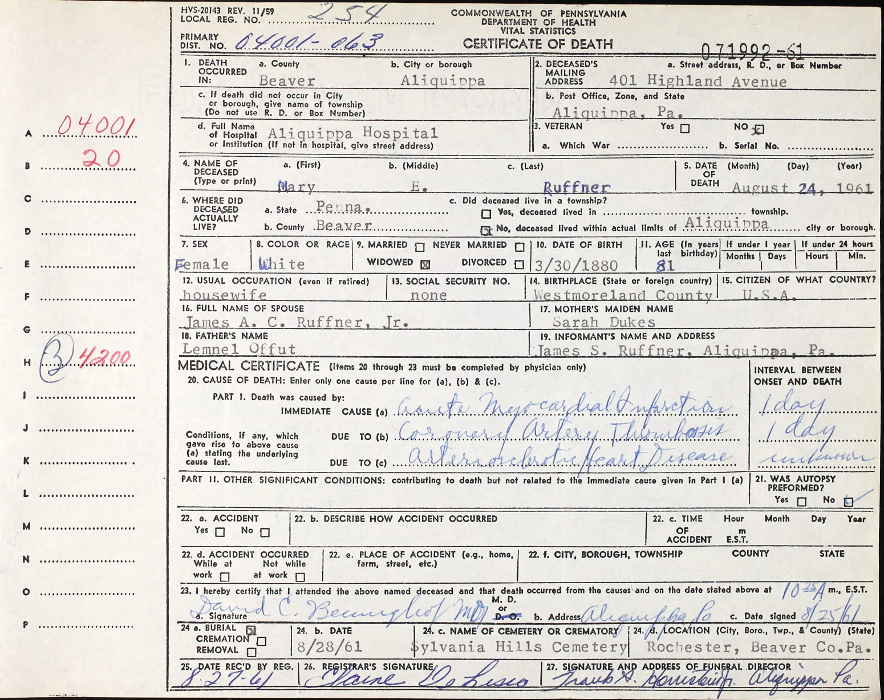 HVS-20143 REV. 11/59
LOCAL REG. NO. 254
COMMONWEALTH OF PENNSYLVANIA
DEPARTMENT OF HEALTH
VITAL STATISTICS
PRIMARY DIST. NO. 04001-063
CERTIFICATE OF DEATH
071992-61
1. DEATH OCCURRED IN: a. County Beaver b. City or borough Aliquippa
c. If death did not occur in City or borough, give name of township (Do not use R. D. or Box Number)
d. Full Name of Hospital or Institution (If not in hospital, give street address) Aliquippa Hospital
2. DECEASED'S MAILING ADDRESS a. Street address, R. D., or Box Number 401 Highland Avenue
b. Post Office, Zone, and State Aliquippa, Pa.
3. VETERAN Yes NO
a. Which War b. Serial No.
4. NAME OF DECEASED (Type or print) a. (First) Mary b. (Middle) E. c. (Last) Ruffner
5. DATE OF DEATH (Month) (Day) (Year) August 24, 1961
6. WHERE DID DECEASED ACTUALLY LIVE? a. State Penna. b. County Beaver
c. Did deceased live in a township?
Yes, deceased lived in township.
No, deceased lived within actual limits of Aliquippa city or borough.
7. SEX Female
8. COLOR OR RACE White
9. MARRIED NEVER MARRIED WIDOWED DIVORCED
10. DATE OF BIRTH 3/30/1880
11. AGE (In years last birthday) 81
If under 1 year Months Days
If under 24 hours Hours Min.
12. USUAL OCCUPATION (even if retired) housewife
13. SOCIAL SECURITY NO. none
14. BIRTHPLACE (State or foreign country) Westmoreland County
15. CITIZEN OF WHAT COUNTRY? U.S.A.
16. FULL NAME OF SPOUSE James A. C. Ruffner, Jr.
17. MOTHER'S MAIDEN NAME Sarah Dukes
18. FATHER'S NAME Lemnel Offut
19. INFORMANT'S NAME AND ADDRESS James S. Ruffner, Aliquippa, Pa.
MEDICAL CERTIFICATE (Items 20 through 23 must be completed by physician only)
INTERVAL BETWEEN ONSET AND DEATH
20. CAUSE OF DEATH: Enter only one cause per line for (a), (b) & (c).
PART I. Death was caused by:
IMMEDIATE CAUSE (a) Acute Myocardial Infarction 1 day
Conditions, if any, which gave rise to above cause (a) stating the underlying cause last.
DUE TO (b) Coronary Artery Thrombosis 1 day
DUE TO (c) Arteriosclerotic Heart Disease unknown
PART II. OTHER SIGNIFICANT CONDITIONS: contributing to death but not related to the immediate cause given in Part I (a)
21. WAS AUTOPSY PREFORMED? Yes No
22. a. ACCIDENT Yes No
22. b. DESCRIBE HOW ACCIDENT OCCURRED
22. c. TIME OF ACCIDENT Hour m E.S.T. Month Day Year
22. d. ACCIDENT OCCURRED While at work Not while at work
22. e. PLACE OF ACCIDENT (e.g., home, farm, street, etc.)
22. f. CITY, BOROUGH, TOWNSHIP COUNTY STATE
23. I hereby certify that I attended the above named deceased and that death occurred from the causes and on the date stated above at 10 A m., E.S.T.
a. Signature David C. M. D. or D.O. b. Address Aliquippa Pa c. Date signed 8/25/61
24 a. BURIAL CREMATION REMOVAL
24. b. DATE 8/28/61
24. c. NAME OF CEMETERY OR CREMATORY Sylvania Hills Cemetery
24. d. LOCATION (City, Boro., Twp., & County) (State) Rochester, Beaver Co.Pa.
25. DATE REC'D BY REG. 8-27-61
26. REGISTRAR'S SIGNATURE Elaine
27. SIGNATURE AND ADDRESS OF FUNERAL DIRECTOR Frank Aliquippa Pa.
A 04001
B 20
C
D
E
F
G
H 3 4200
I
J
K
L
M
N
O
P